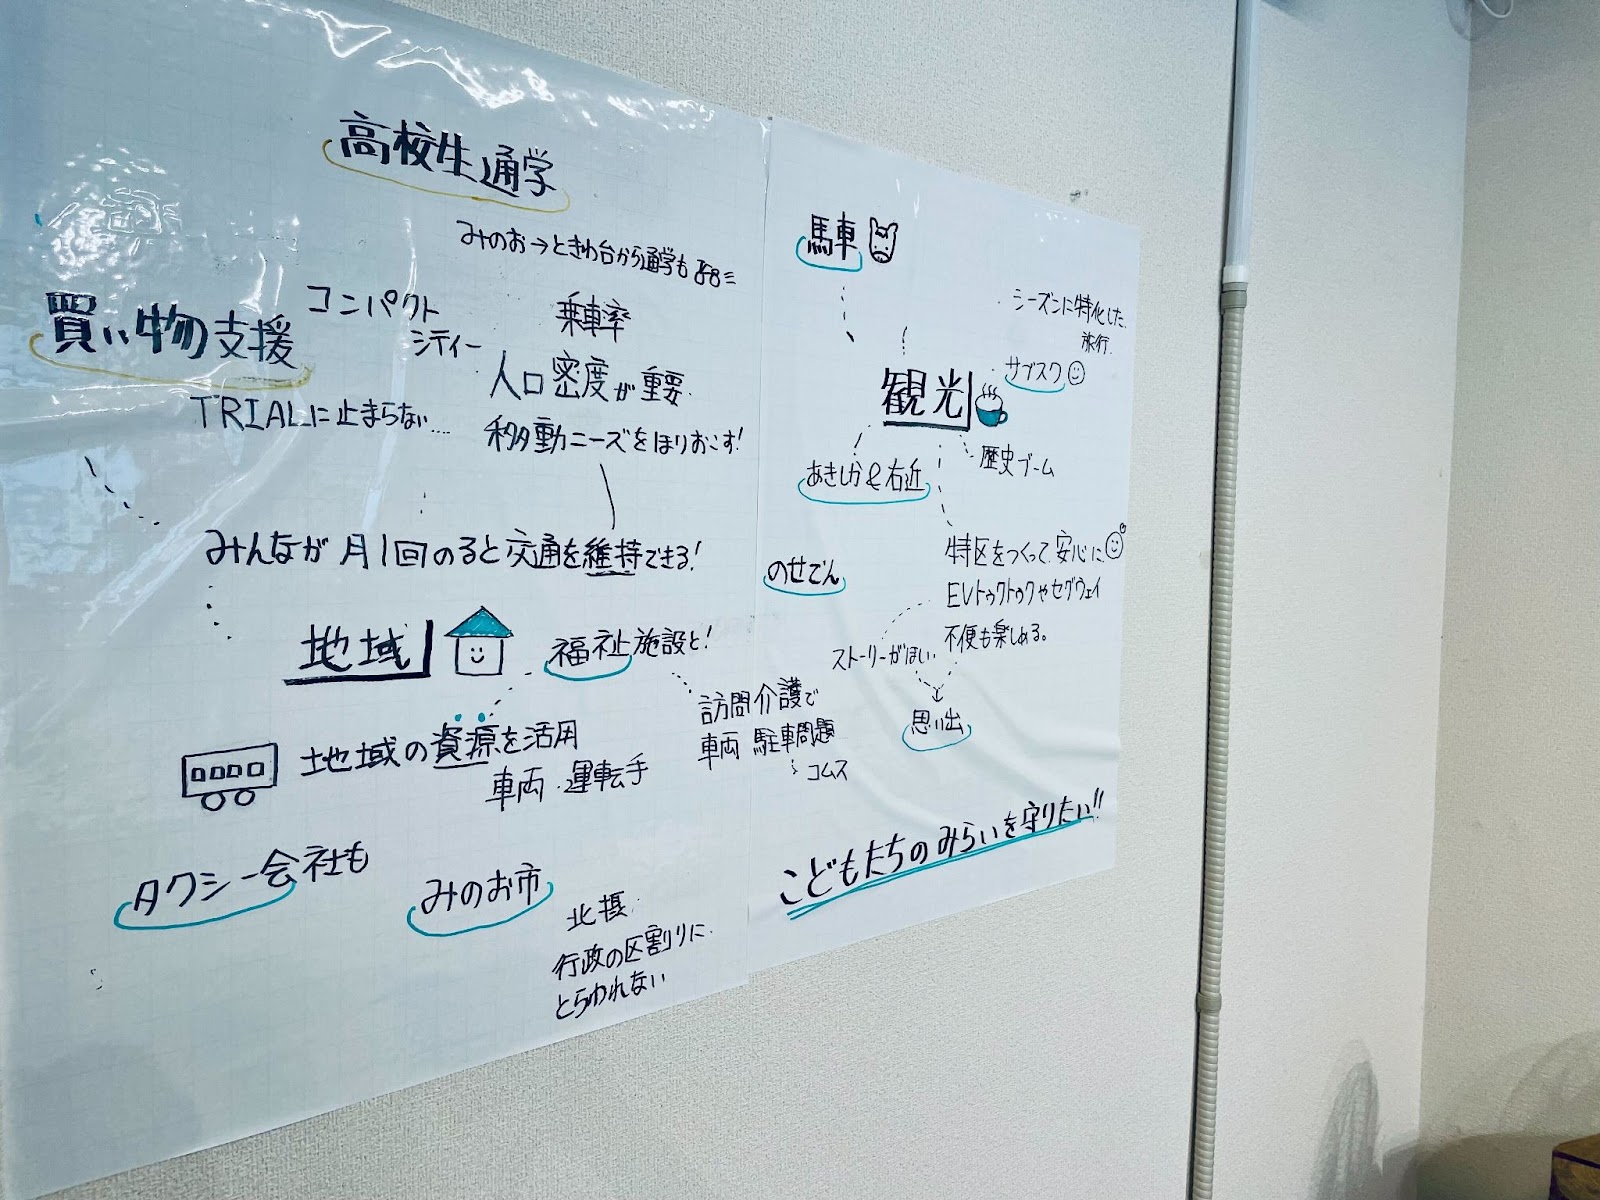 高校生通学
みのお→ときわ台から通学も
買い物支援
コンパクト
シティー
乗車率
人口密度が重要.
TRIALに止まらない....
移動ニーズをほりおこす!
みんなが月1回のると交通を維持できる!
地域
福祉施設と!
地域の資源を活用
車両・運転手
訪問介護で
車両 駐車問題
コムス
タクシー会社も
みのお市
北摂
行政の区割りに
とらわれない
馬車
シーズンに特化した
旅行.
サブスク
観光
歴史ブーム
あきしか&右近
のせでん
特区をつくって安心に
EVトゥクトゥクやセグウェイ
不便も楽しめる。
ストーリーがほしい.
思い出
こどもたちのみらいを守りたい!!